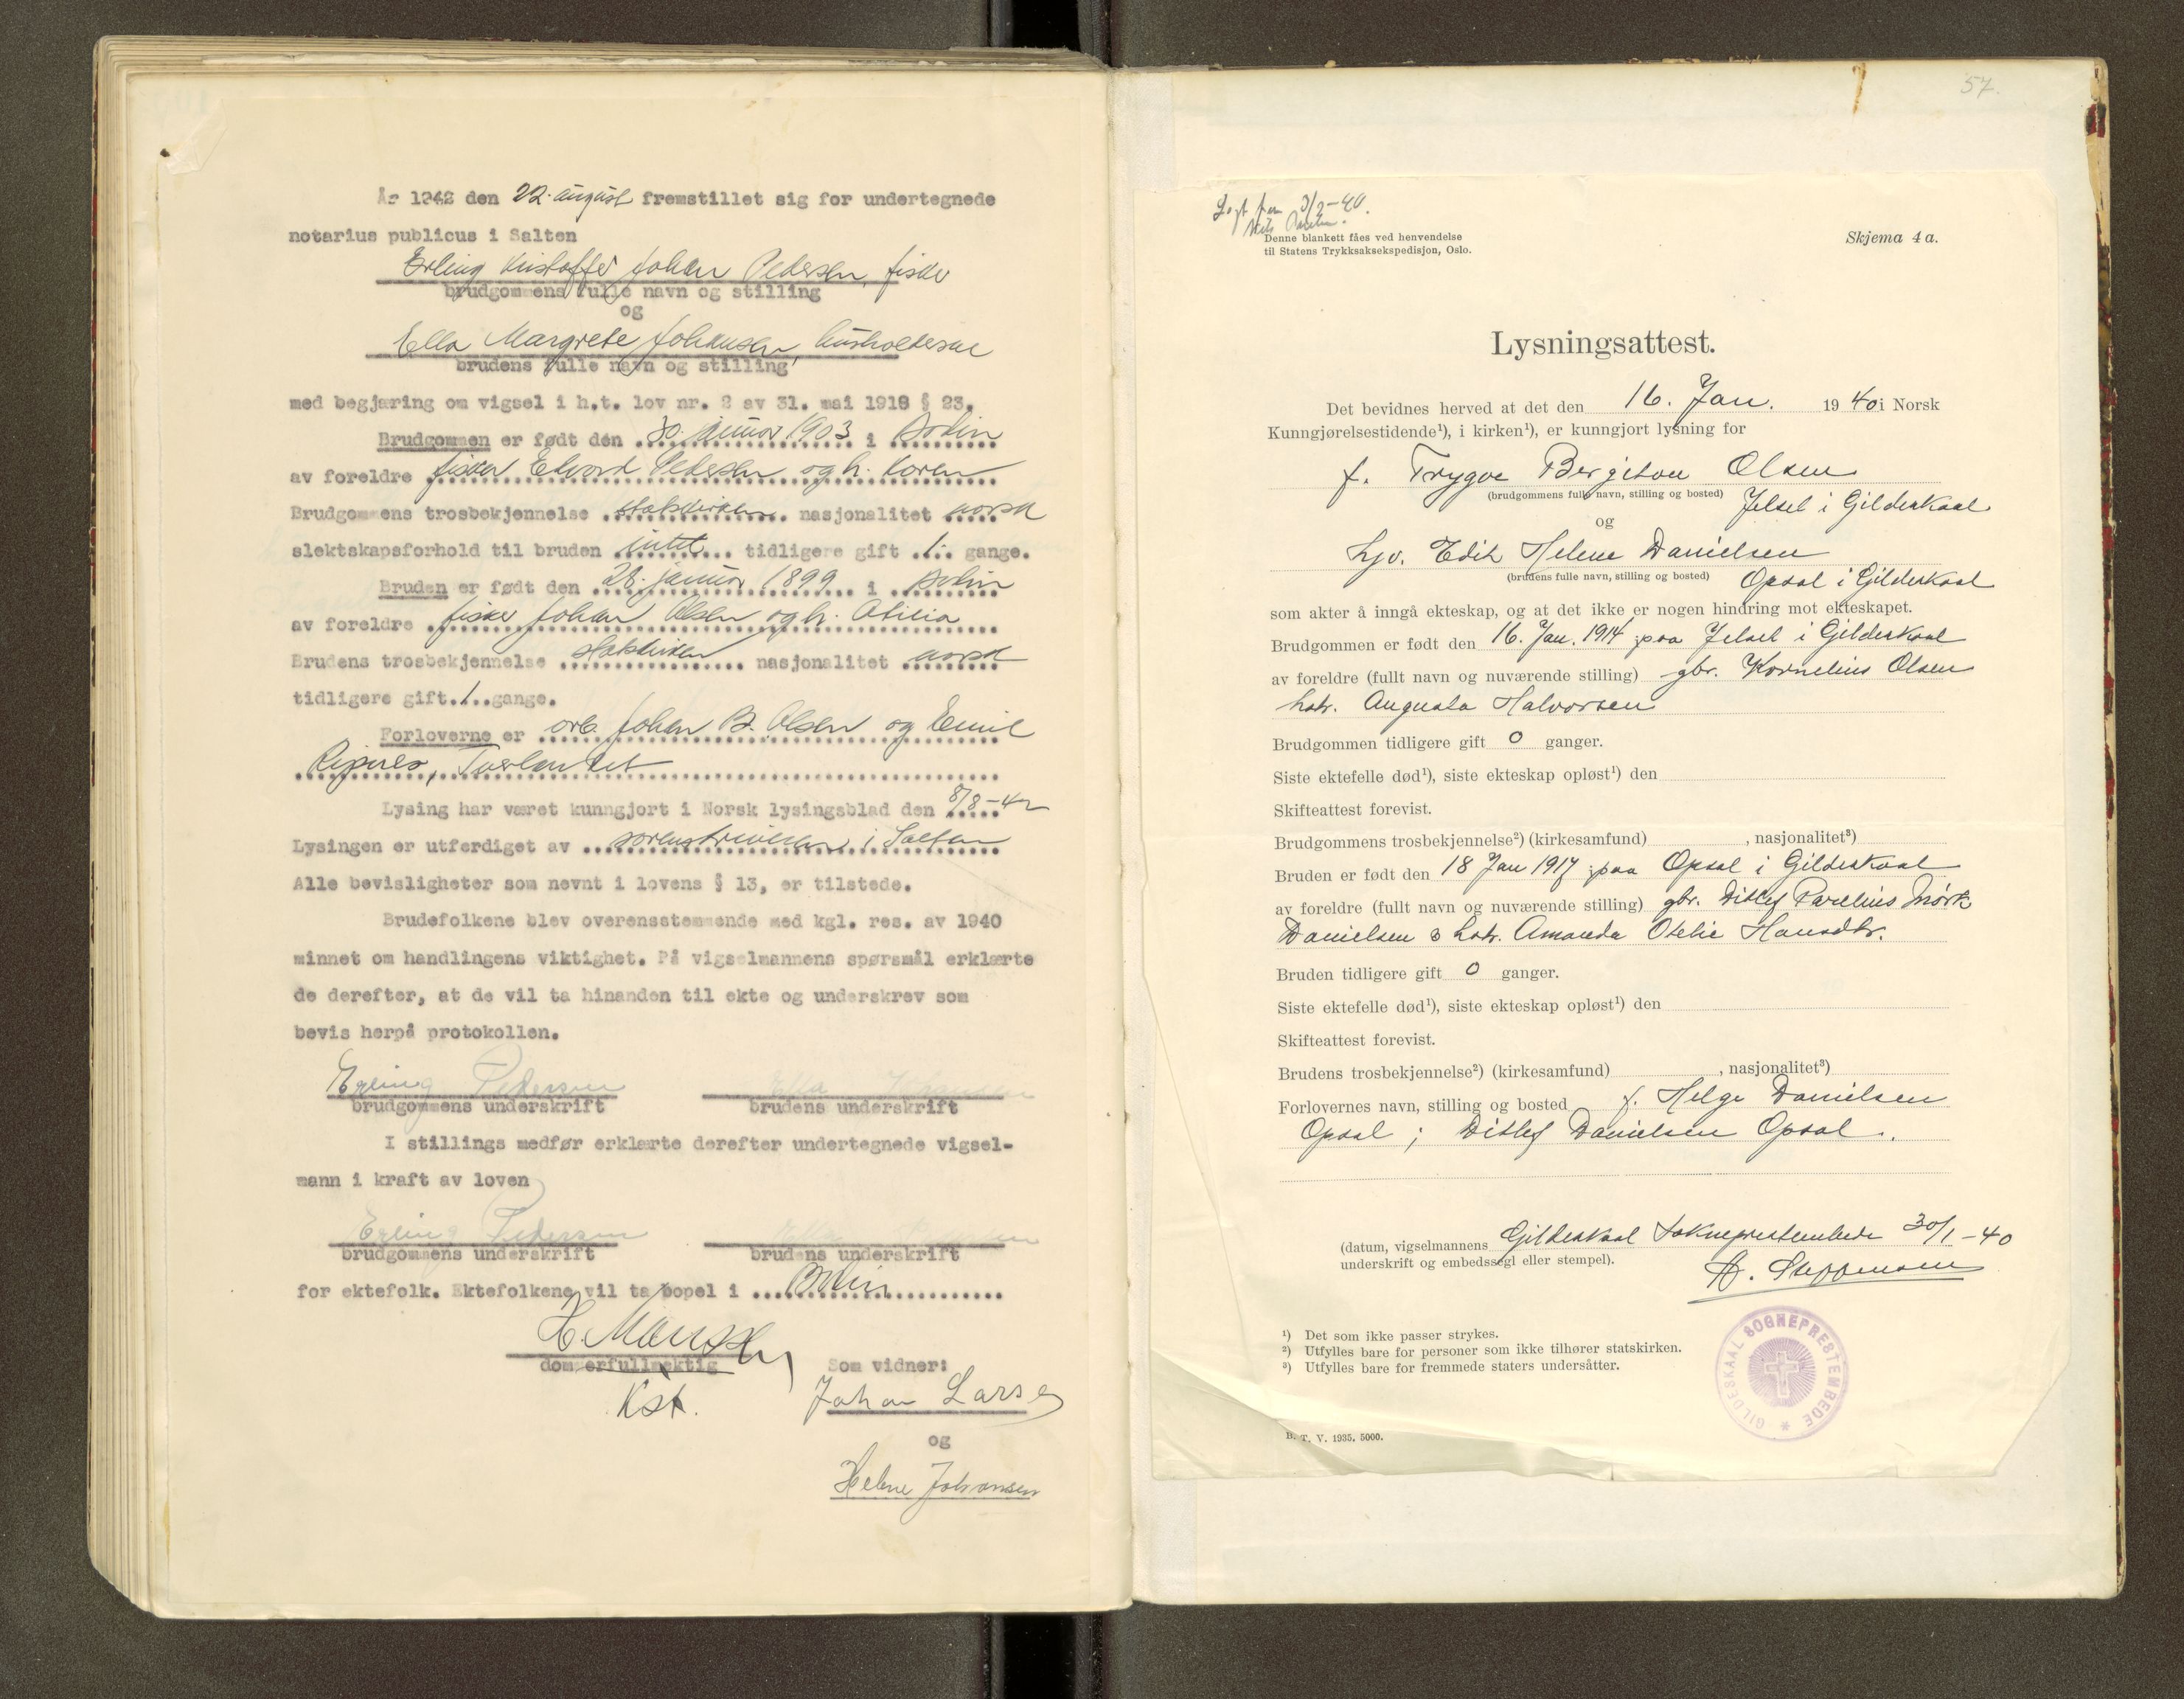 År 1942 den 22. august fremstillet sig for undertegnede
notarius publicus i Salten
Erling Kristoffer Johan Pedersen, fisker
brudgommens fulle navn og stilling
og
Ella Margrete Johansen, husholderske
brudens fulle navn og stilling
med begjæring om vigsel i h.t. lov nr. 2 av 31. mai 1918 § 23.
Brudgommen er født den 30. januar 1903 i Bodin
av foreldre fisker Edvard Pedersen og h. Karen
Brudgommens trosbekjennelse statskirken nasjonalitet norsk
slektskapsforhold til bruden intet tidligere gift 1 gange.
Bruden er født den 28. januar 1899 i Bodin
av foreldre fisker Johan Olsen og h. Otilia
Brudens trosbekjennelse statskirken nasjonalitet norsk
tidligere gift 1 gange.
Forloverne er arb. Johan B. Olsen og Emil
Ripnes, Tverlandet
Lysing har været kunngjort i Norsk lysingsblad den 8/8-42
Lysingen er utferdiget av sorenskriveren i Salten
Alle bevisligheter som nevnt i lovens § 13, er tilstede.
Brudefolkene blev overensstemmende med kgl. res. av 1940
minnet om handlingens viktighet. På vigselmannens spørsmål erklærte
de derefter, at de vil ta hinanden til ekte og underskrev som
bevis herpå protokollen.
Erling Pedersen Ella Johansen
brudgommens underskrift brudens underskrift
I stillings medfør erklærte derefter undertegnede vigsel-
mann i kraft av loven
Erling Pedersen Ella
brudgommens underskrift brudens underskrift
for ektefolk. Ektefolkene vil ta bopel i Bodin
dommerfullmektig Som vidner:
Kst. Johan Larsen
og
Helene Johansen
57.
3/2-40.
Denne blankett fåes ved henvendelse
til Statens Trykksaksekspedisjon, Oslo.
Skjema 4 a.
Lysningsattest.
Det bevidnes herved at det den 16. Jan. 1940 i Norsk
Kunngjørelsestidende¹), i kirken¹), er kunngjort lysning for
f. Trygve Bergiton Olsen
(brudgommens fulle navn, stilling og bosted) Jelsel i Gildeskaal
og
hjv. Edit Helene Danielsen
(brudens fulle navn, stilling og bosted) Opsal i Gildeskaal
som akter å inngå ekteskap, og at det ikke er nogen hindring mot ekteskapet.
Brudgommen er født den 16. Jan. 1914 paa Jelsel i Gildeskaal
av foreldre (fullt navn og nuværende stilling) gbr. Kornelius Olsen
hstr. Augusta Halvorsen
Brudgommen tidligere gift 0 ganger.
Siste ektefelle død¹), siste ekteskap opløst¹) den
Skifteattest forevist.
Brudgommens trosbekjennelse²) (kirkesamfund) , nasjonalitet³)
Bruden er født den 18 Jan 1917 paa Opsal i Gildeskaal
av foreldre (fullt navn og nuværende stilling) gbr. Ditlef Parelius Mørk
Danielsen & hstr. Amanda Otelie Hansdtr.
Bruden tidligere gift 0 ganger.
Siste ektefelle død¹), siste ekteskap opløst¹) den
Skifteattest forevist.
Brudens trosbekjennelse²) (kirkesamfund) , nasjonalitet³)
Forlovernes navn, stilling og bosted f. Helge Danielsen
Opsal; Ditlef Danielsen Opsal.
(datum, vigselmannens Gildeskaal sokneprestembede 30/1-40
underskrift og embedssegl eller stempel).
¹) Det som ikke passer strykes.
²) Utfylles bare for personer som ikke tilhører statskirken.
³) Utfylles bare for fremmede staters undersåtter.
GILDESKAAL SOGNEPRESTEMBEDE *
B. T. V. 1935. 5000.